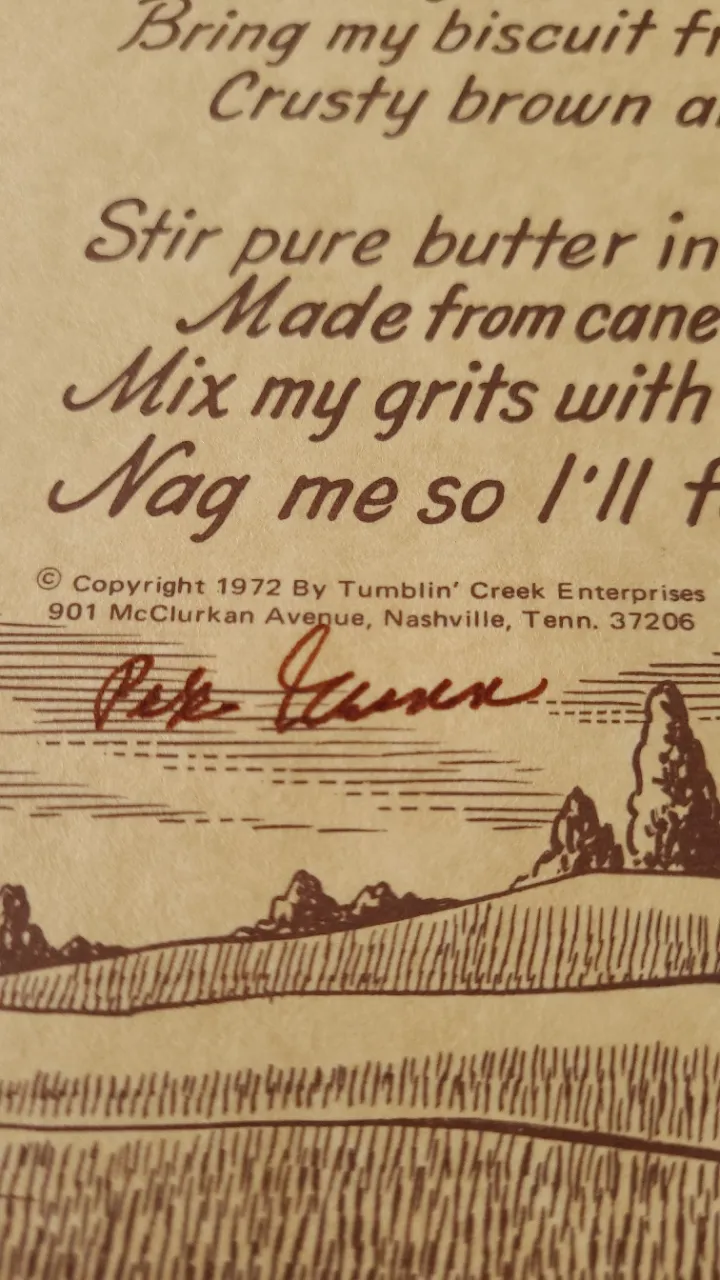 Bring my biscuit
Crusty brown
Stir pure butter in
Made from cane
Mix my grits with
Nag me so I'll
© Copyright 1972 By Tumblin' Creek Enterprises
901 McClurkan Avenue, Nashville, Tenn. 37206